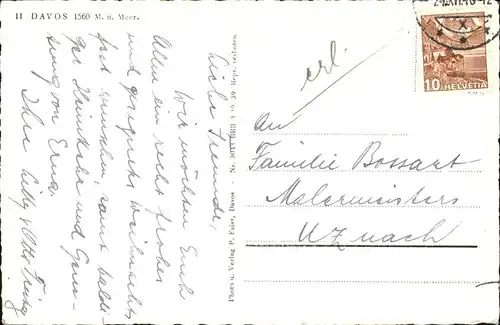 11 DAVOS 1560 M. ü. Meer.
Liebe Freunde,
Wir möchten Euch
Allen ein recht frohes
und gesegnetes Weihnachts-
fest wünschen, samt baldi-
ger Heimkehr und Gene-
sung von Erna.
Ihre Lilly & Otto
Photo u. Verlag P. Faiss, Davos - Nr.
Repr. verboten
erl.
10 HELVETIA
An
Familie Bossart
Malermeisters
Uznach